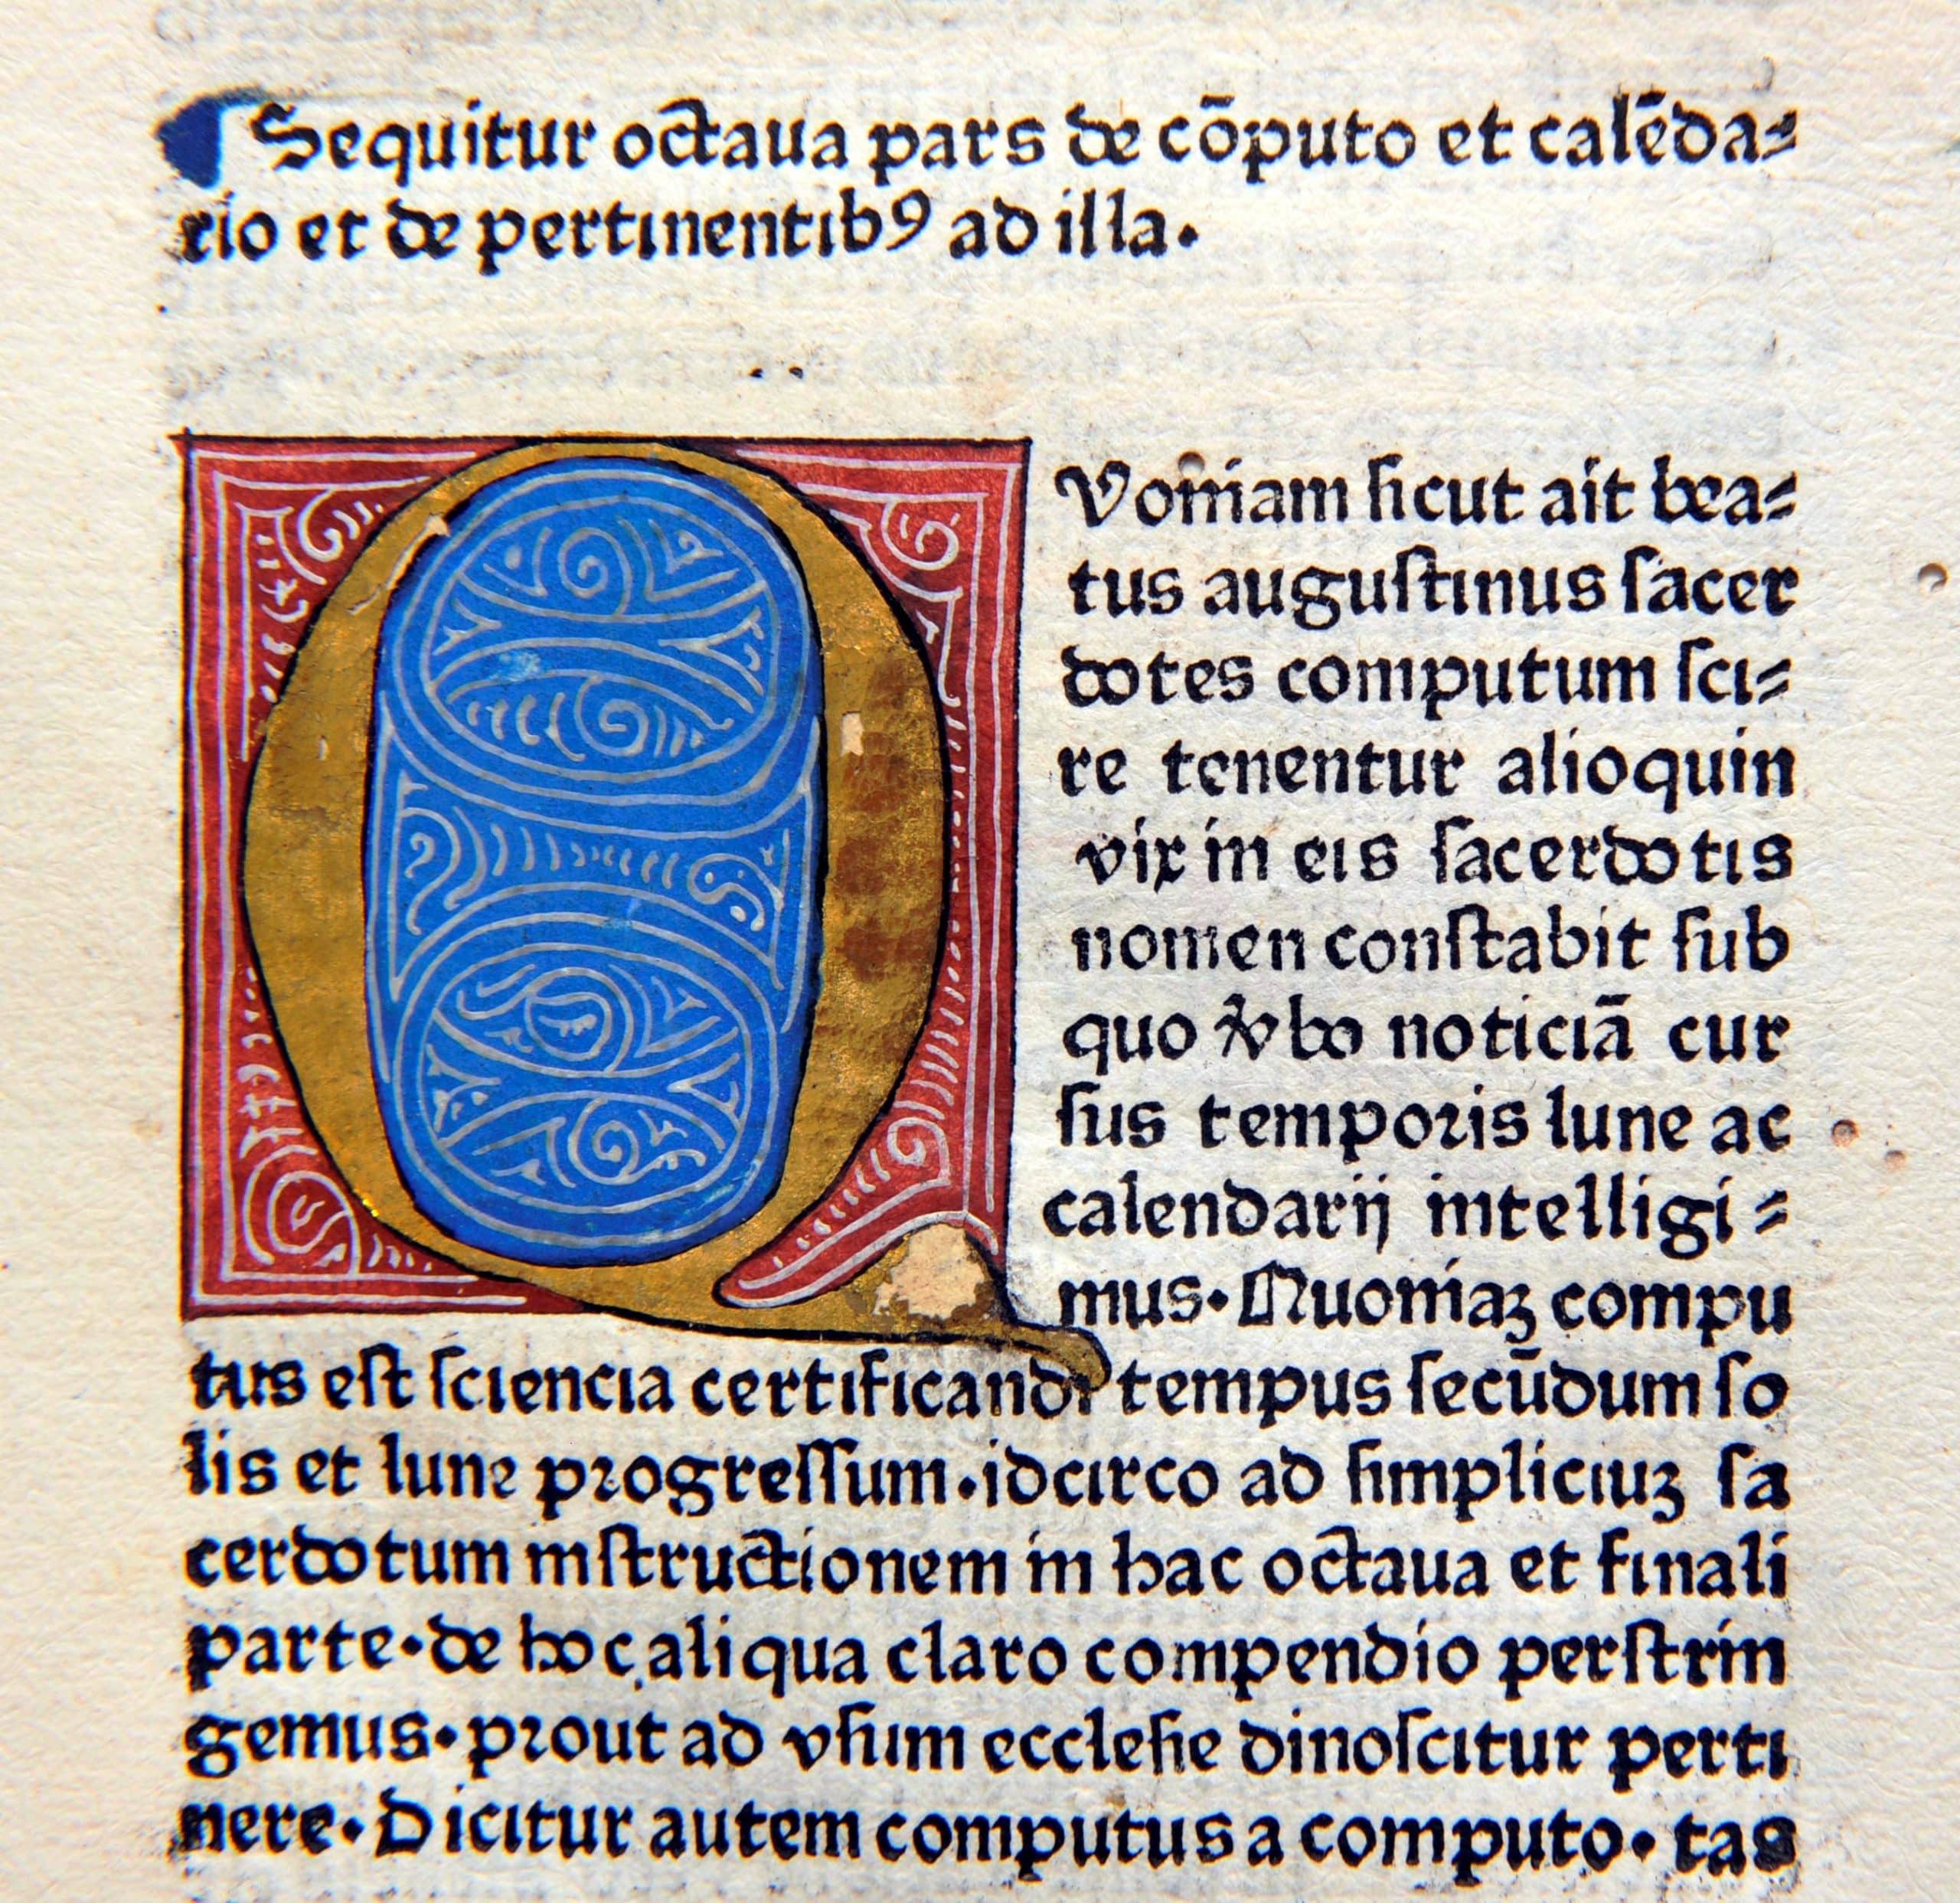 ¶ Sequitur octaua pars de cōputo et calēda⸗
rio et de pertinentibꝰ ad illa.
QVoniam ſicut ait bea⸗
tus auguſtinus ſacer
dotes computum ſci⸗
re tenentur alioquin
vix in eis ſacerdotis
nomen conſtabit ſub
quo bo noticiā cur
ſus temporis lune ac
calendarij intelligi⸗
mus. Quoniaꝫ compu
tus eſt ſciencia certificandi tempus ſecūdum ſo
lis et lune progreſſum. idcirco ad ſimpliciuꝫ ſa
cerdotum inſtructionem in hac octaua et finali
parte. de hoc aliqua claro compendio perſtrin
gemus. prout ad vſum eccleſie dinoſcitur perti
nere. Dicitur autem computus a computo. tas